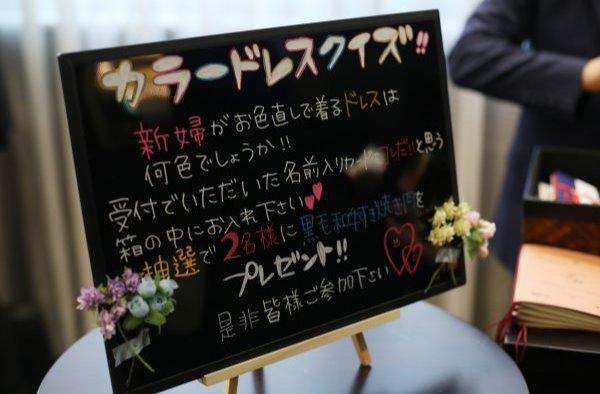 カラードレスクイズ!!
新婦がお色直しで着るドレスは
何色でしょうか!!
受付でいただいた名前入りカードをコレだ!!と思う
箱の中にお入れ下さい
抽選で2名様に黒毛和牛すき焼き用を
プレゼント!!
是非皆様ご参加下さい